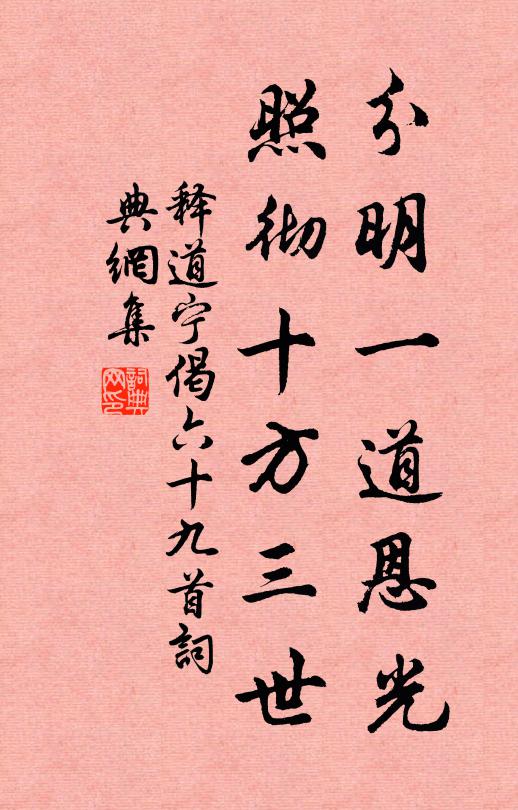 分明一道恩光
照彻十方三世
释道宁偈六十九首詞
典網集
詞典网印